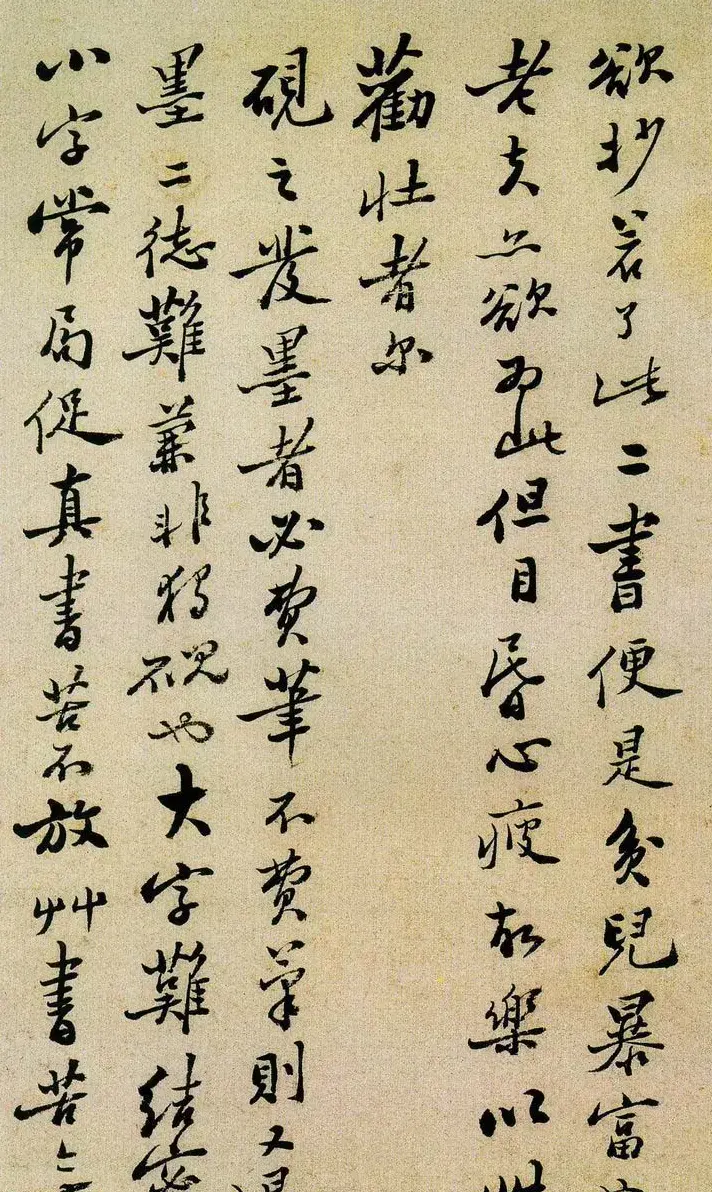 欲抄若了此二書便是貧兒暴富
老夫亦欲為此但目昏心疲故樂以
勸壯者尔
硯之發墨者必費筆不費筆則又
墨二德難兼非獨硯也大字難結密
小字常局促真書苦不放艸書苦